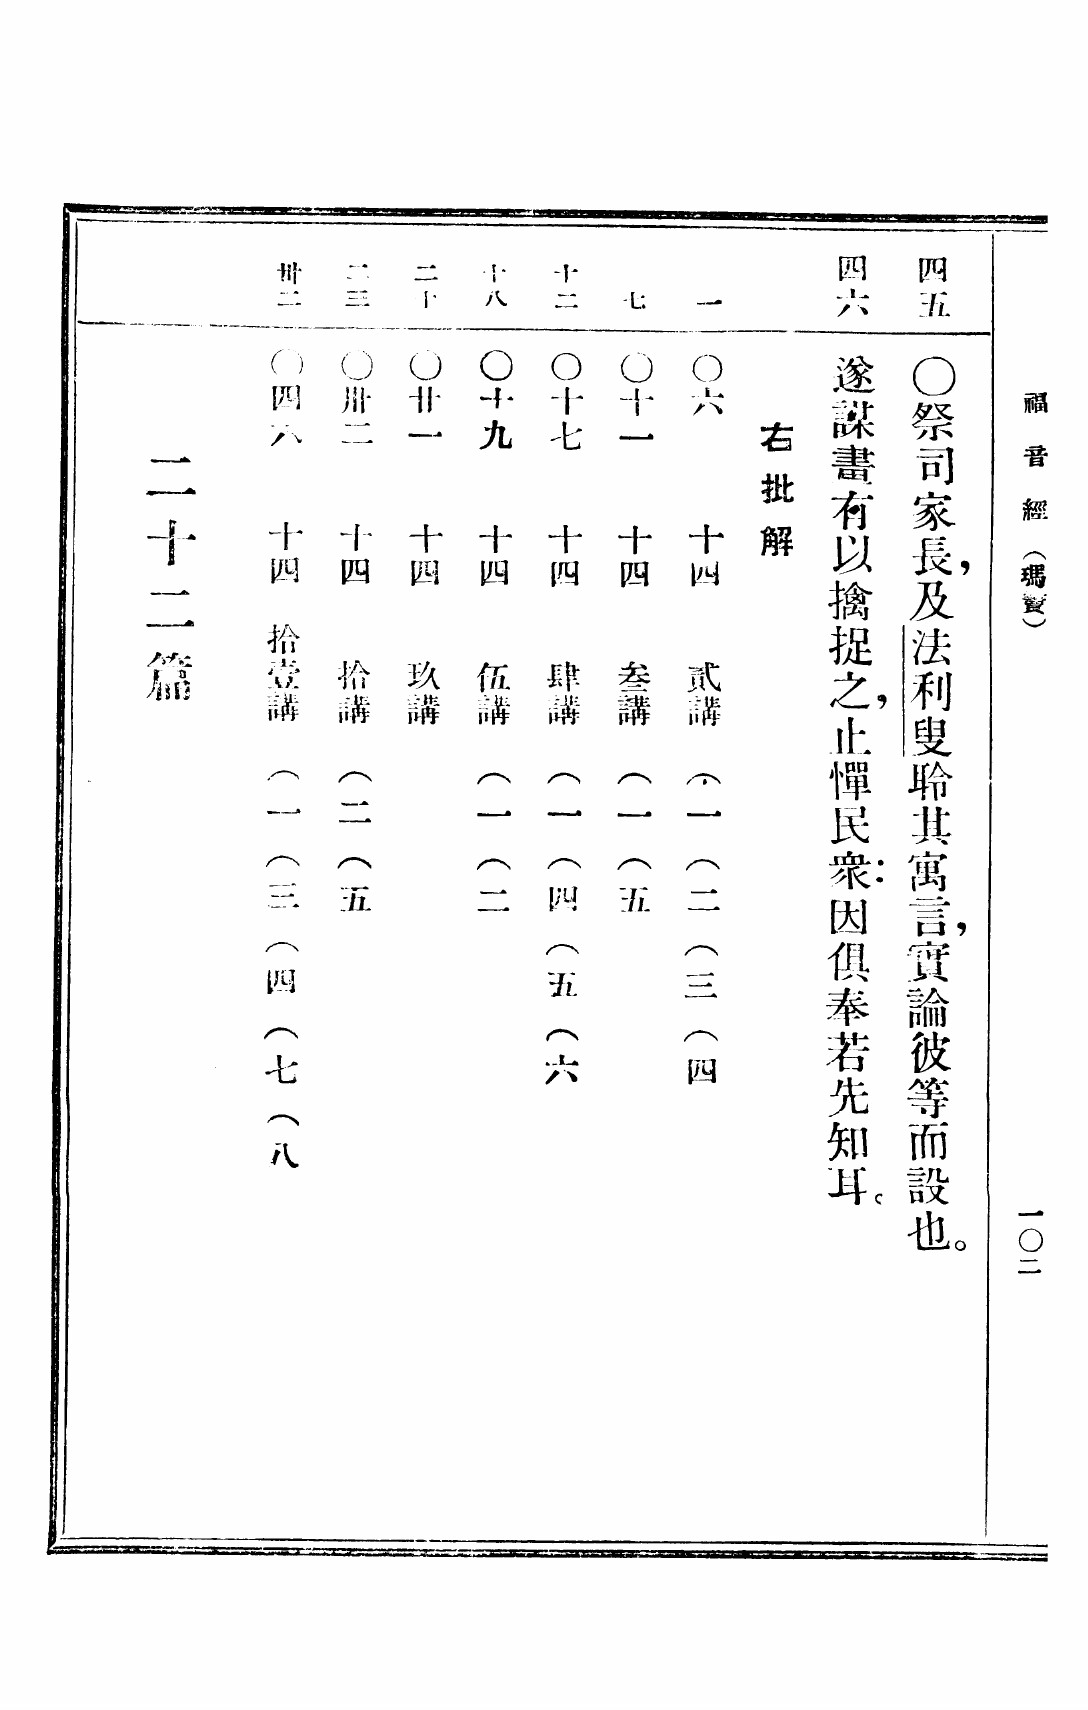 福音經（瑪竇） 一〇二
四五 〇祭司家長，及法利叟聆其寓言，實論彼等而設也。
四六 遂謀畫有以擒捉之，止憚民衆：因俱奉若先知耳。
右批解
一 〇六 十四 貳講（一（二（三（四
七 〇十一 十四 叁講（一（五
十二 〇十七 十四 肆講（一（四（五（六
十八 〇十九 十四 伍講（一（二
二十 〇廿一 十四 玖講
二三 〇卅二 十四 拾講（二（五
卅二 〇四六 十四 拾壹講（一（三（四（七（八
二十二篇